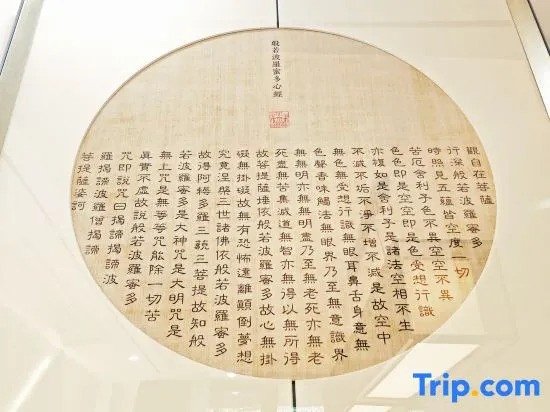 般若波羅蜜多心經
觀自在菩薩
行深般若波羅蜜多
時照見五蘊皆空度一切
苦厄舍利子色不異空空不異
色色即是空空即是色受想行識
亦復如是舍利子是諸法空相不生
不滅不垢不淨不增不減是故空中
無色無受想行識無眼耳鼻舌身意無
色聲香味觸法無眼界乃至無意識界
無無明亦無無明盡乃至無老死亦無老
死盡無苦集滅道無智亦無得以無所得
故菩提薩埵依般若波羅蜜多故心無掛
礙無掛礙故無有恐怖遠離顛倒夢想
究竟涅槃三世諸佛依般若波羅蜜多
故得阿耨多羅三藐三菩提故知般
若波羅蜜多是大神咒是大明咒是
無上咒是無等等咒能除一切苦
真實不虛故說般若波羅蜜多
咒即說咒曰揭諦揭諦波
羅揭諦波羅僧揭諦
菩提薩婆訶
Trip.com